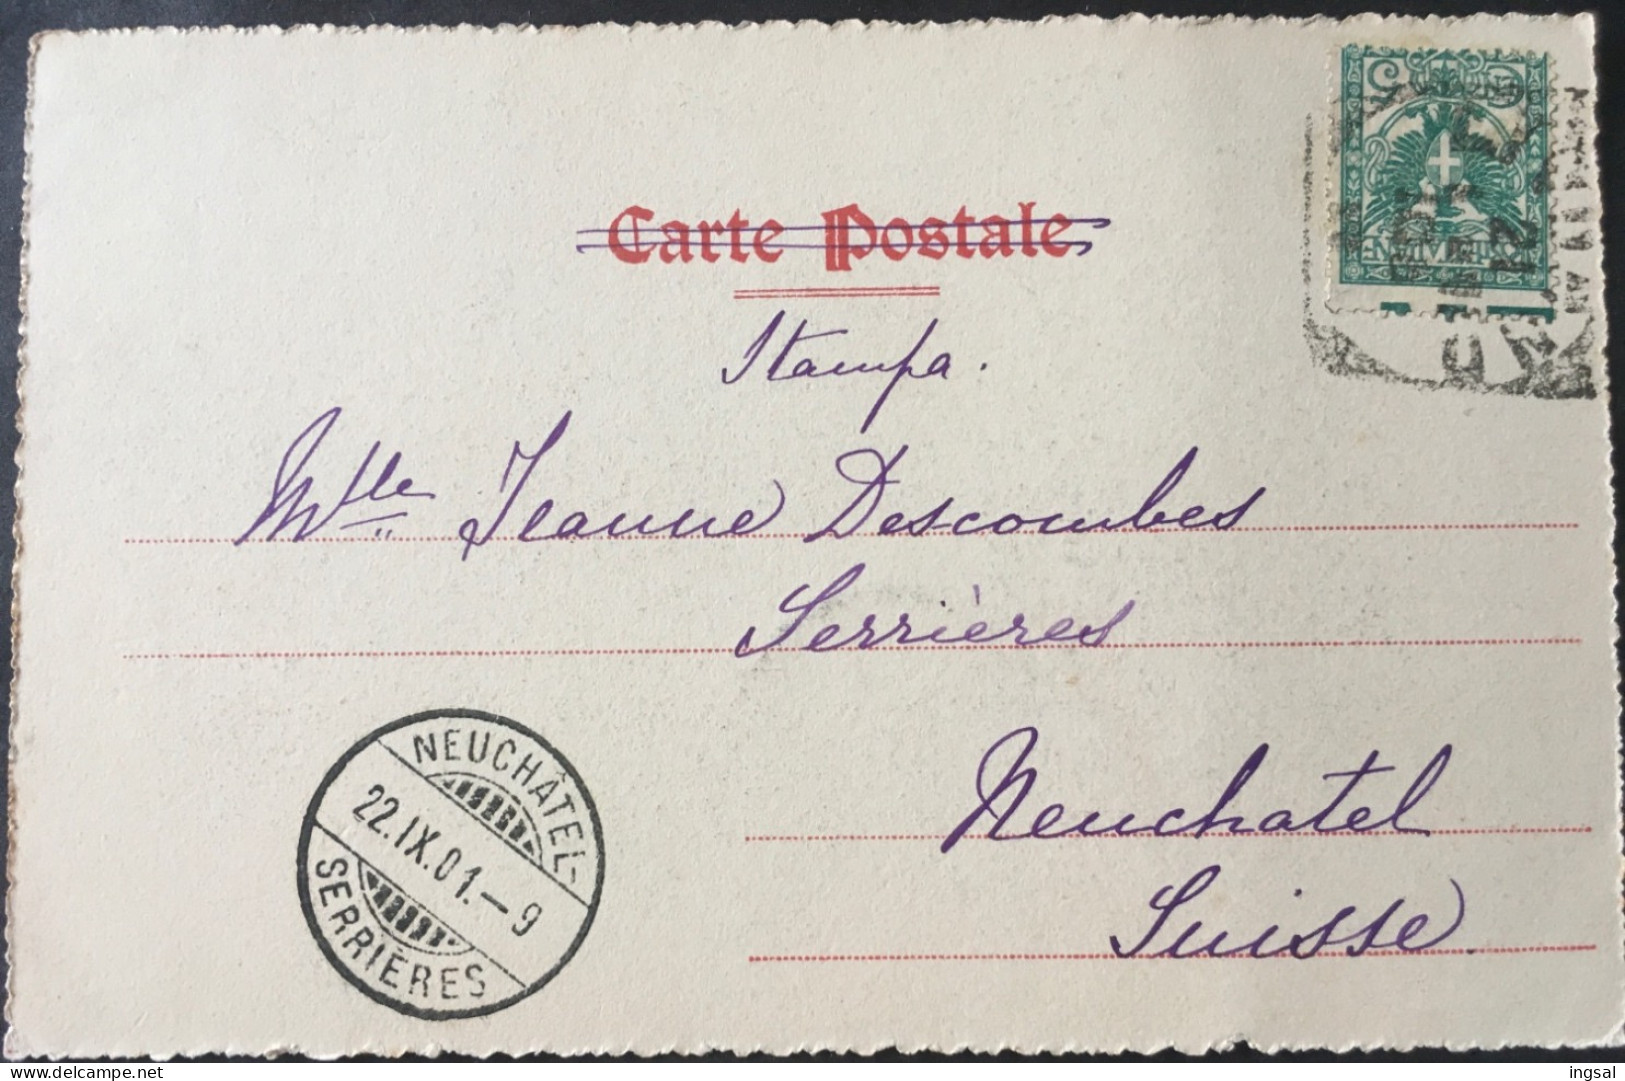 Carte Postale
Stampa.
Mlle Jeanne Descombes
Serrières
Neuchatel
Suisse.
NEUCHÂTEL-
22.IX.01.-9
SERRIÈRES
delcampe.net
ingsal